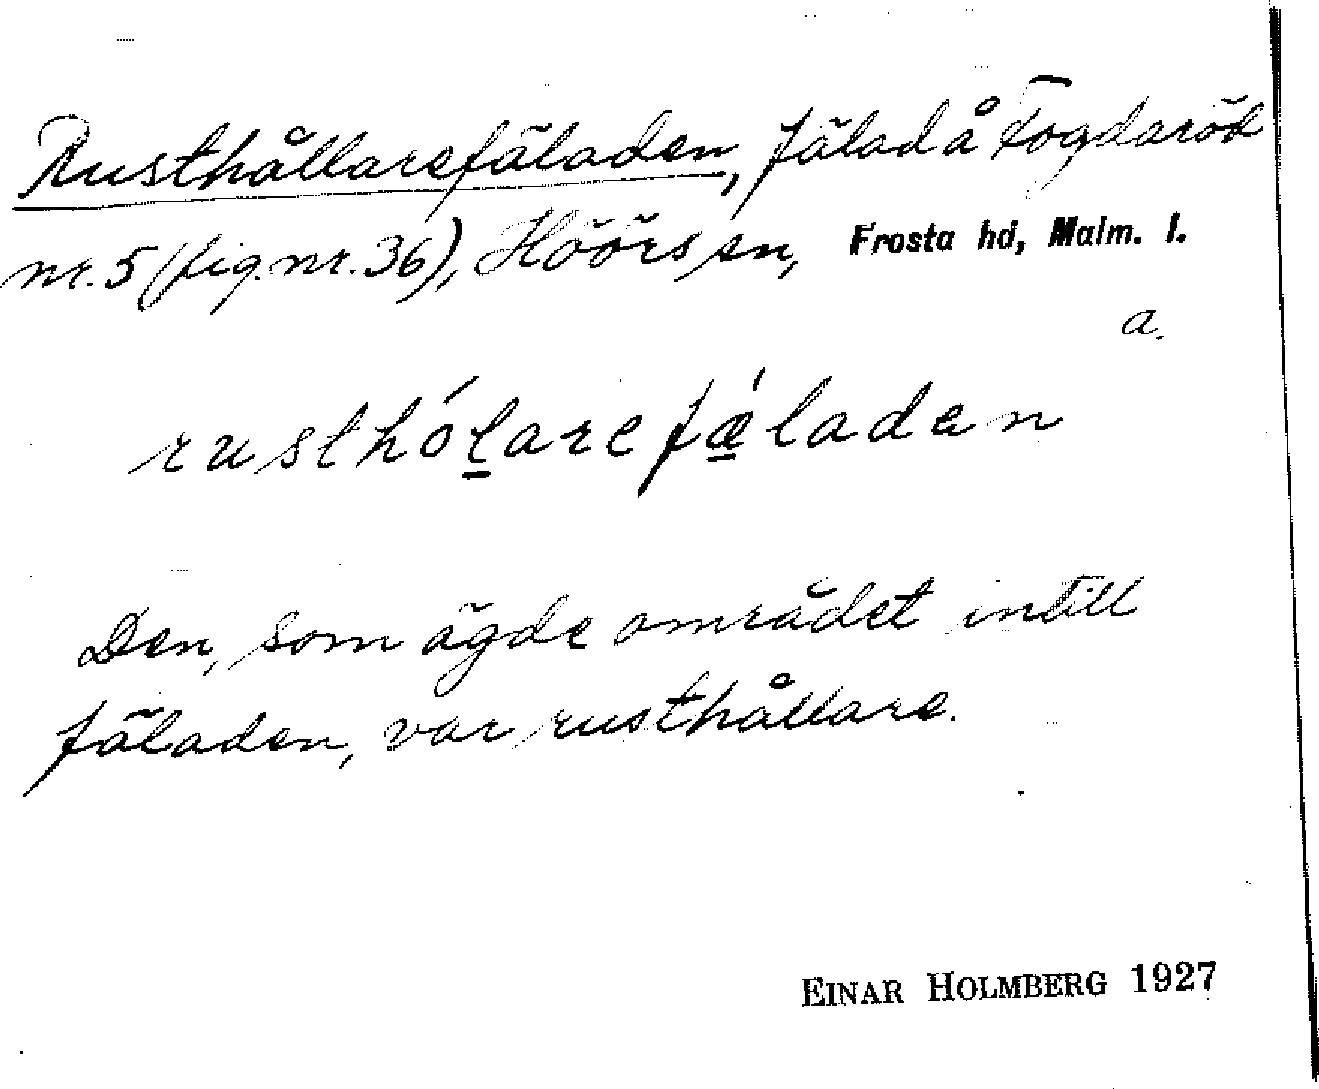 Rusthållarefäladen, fälad å Fogdaröd
nr. 5 (fig. nr. 36), Höörs sn, Frosta hd, Malm. l.
a.
rusthó̱larefǽ̱laden
Den, som ägde området intill
fäladen, var rusthållare.
EINAR HOLMBERG 1927